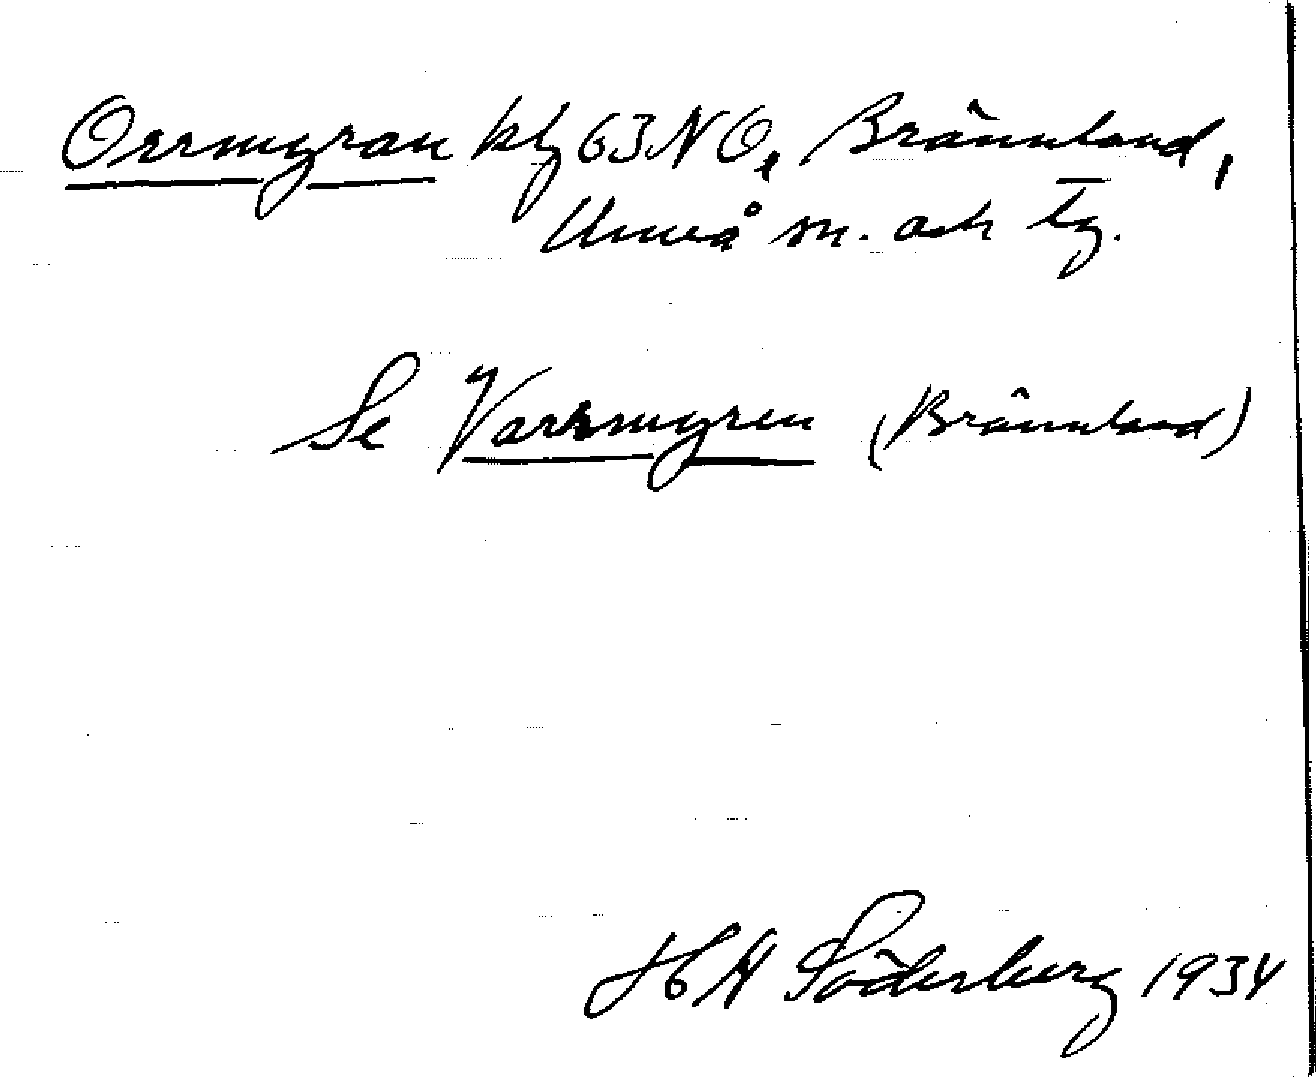 Orrmyran kbl 63NO, Brännland,
Umeå sn. och tg.
Se Varrmyren (Brännland)
H Söderberg 1934